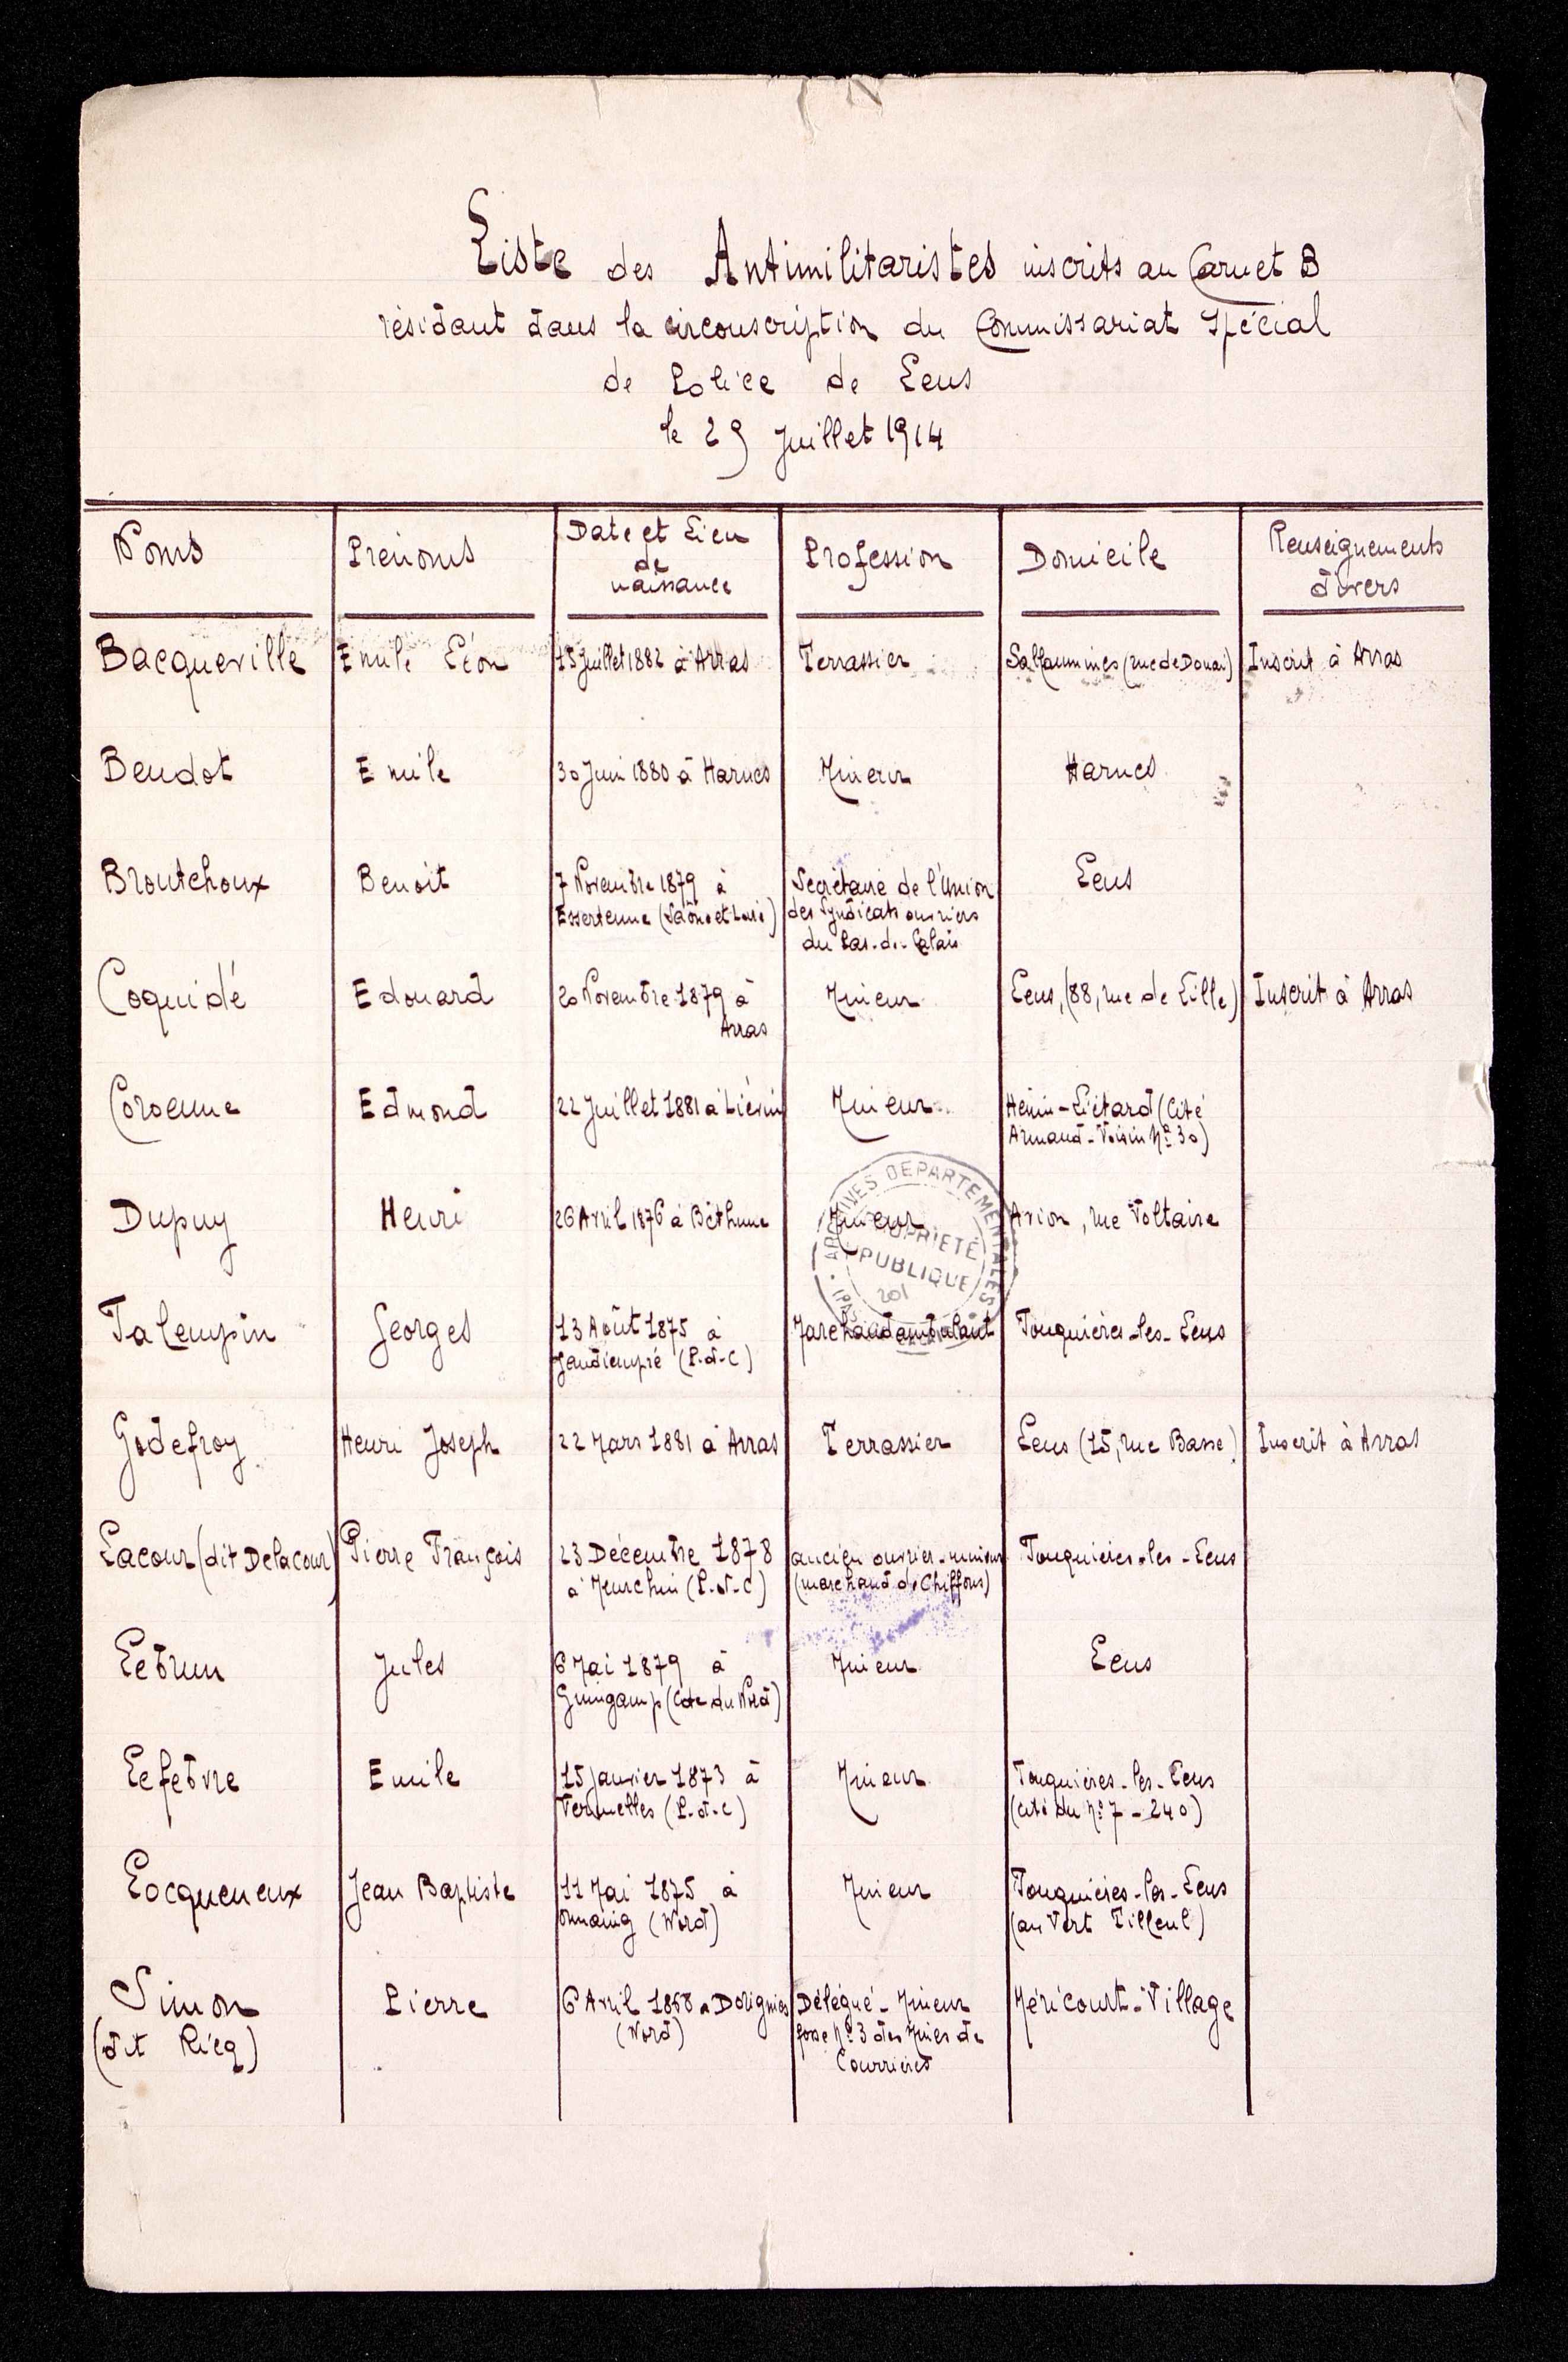 Liste des Antimilitaristes inscrits au Carnet B
résidant dans la circonscription du Commissariat Spécial
de Police de Lens
le 29 Juillet 1914
Noms Prénoms Date et Lieu de naissance Profession Domicile Renseignements divers
Bacqueville Emile Léon 15 Juillet 1882 à Arras Terrassier Sallaumines (rue de Douai) Inscrit à Arras
Beudot Emile 30 Juin 1880 à Harnes Mineur Harnes
Broutchoux Benoit 7 Novembre 1879 à Secrétaire de l'Union Lens
Essertenne (Saône et Loire) des Syndicats ouvriers
du Pas-de-Calais
Coquidé Edouard 20 Novembre 1879 à Mineur Lens, (88, rue de Lille) Inscrit à Arras
Arras
Coroenne Edmond 22 Juillet 1881 à Liévin Mineur Hénin-Liétard (Cité
Armand-Voisin N° 30)
Dupuy Henri 26 Avril 1876 à Béthune Mineur Avion, rue Voltaire
ARCHIVES DEPARTEMENTALES
PROPRIETÉ
PUBLIQUE
201
Falempin Georges 13 Août 1875 à Marchand ambulant Fouquières-les-Lens
Gaudiempré (P-d-C)
Godefroy Henri Joseph 22 Mars 1881 à Arras Terrassier Lens (15, rue Basse) Inscrit à Arras
Lacour (dit Delacour) Pierre François 23 Décembre 1878 ancien ouvrier-mineur Fouquières-les-Lens
à Meurchin (P-d-C) (marchand de Chiffons)
Lebrun Jules 6 Mai 1879 à Mineur Lens
Guingamp (Côte du Nord)
Lefebvre Emile 15 Janvier 1873 à Mineur Fouquières-les-Lens
Vermelles (P-d-C) (cité du N° 7-240)
Locqueneux Jean Baptiste 11 Mai 1875 à Mineur Fouquières-les-Lens
Onnaing (Nord) (au Vert Tilleul)
Simon Pierre 6 Avril 1868 à Dorignies Délégué-Mineur Méricourt-Village
(dit Ricq) (Nord) fosse N° 3 des Mines de
Courrières